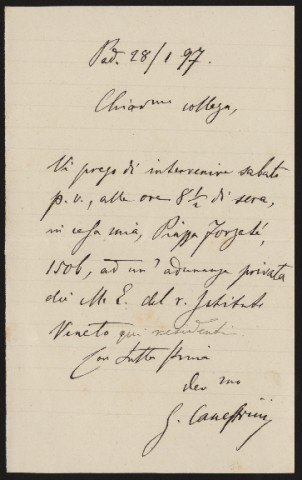 Pad. 28/1 97.
Chiar.mo collega,
Vi prego di intervenire sabato
p. v., alle ore 8 1/2 di sera,
in casa mia, Piazza Forzatè,
1506, ad un' adunanza privata
dei M. E. del r. Istituto
Veneto qui residenti.
Con tutta stima
dev mo
G. Canestrini